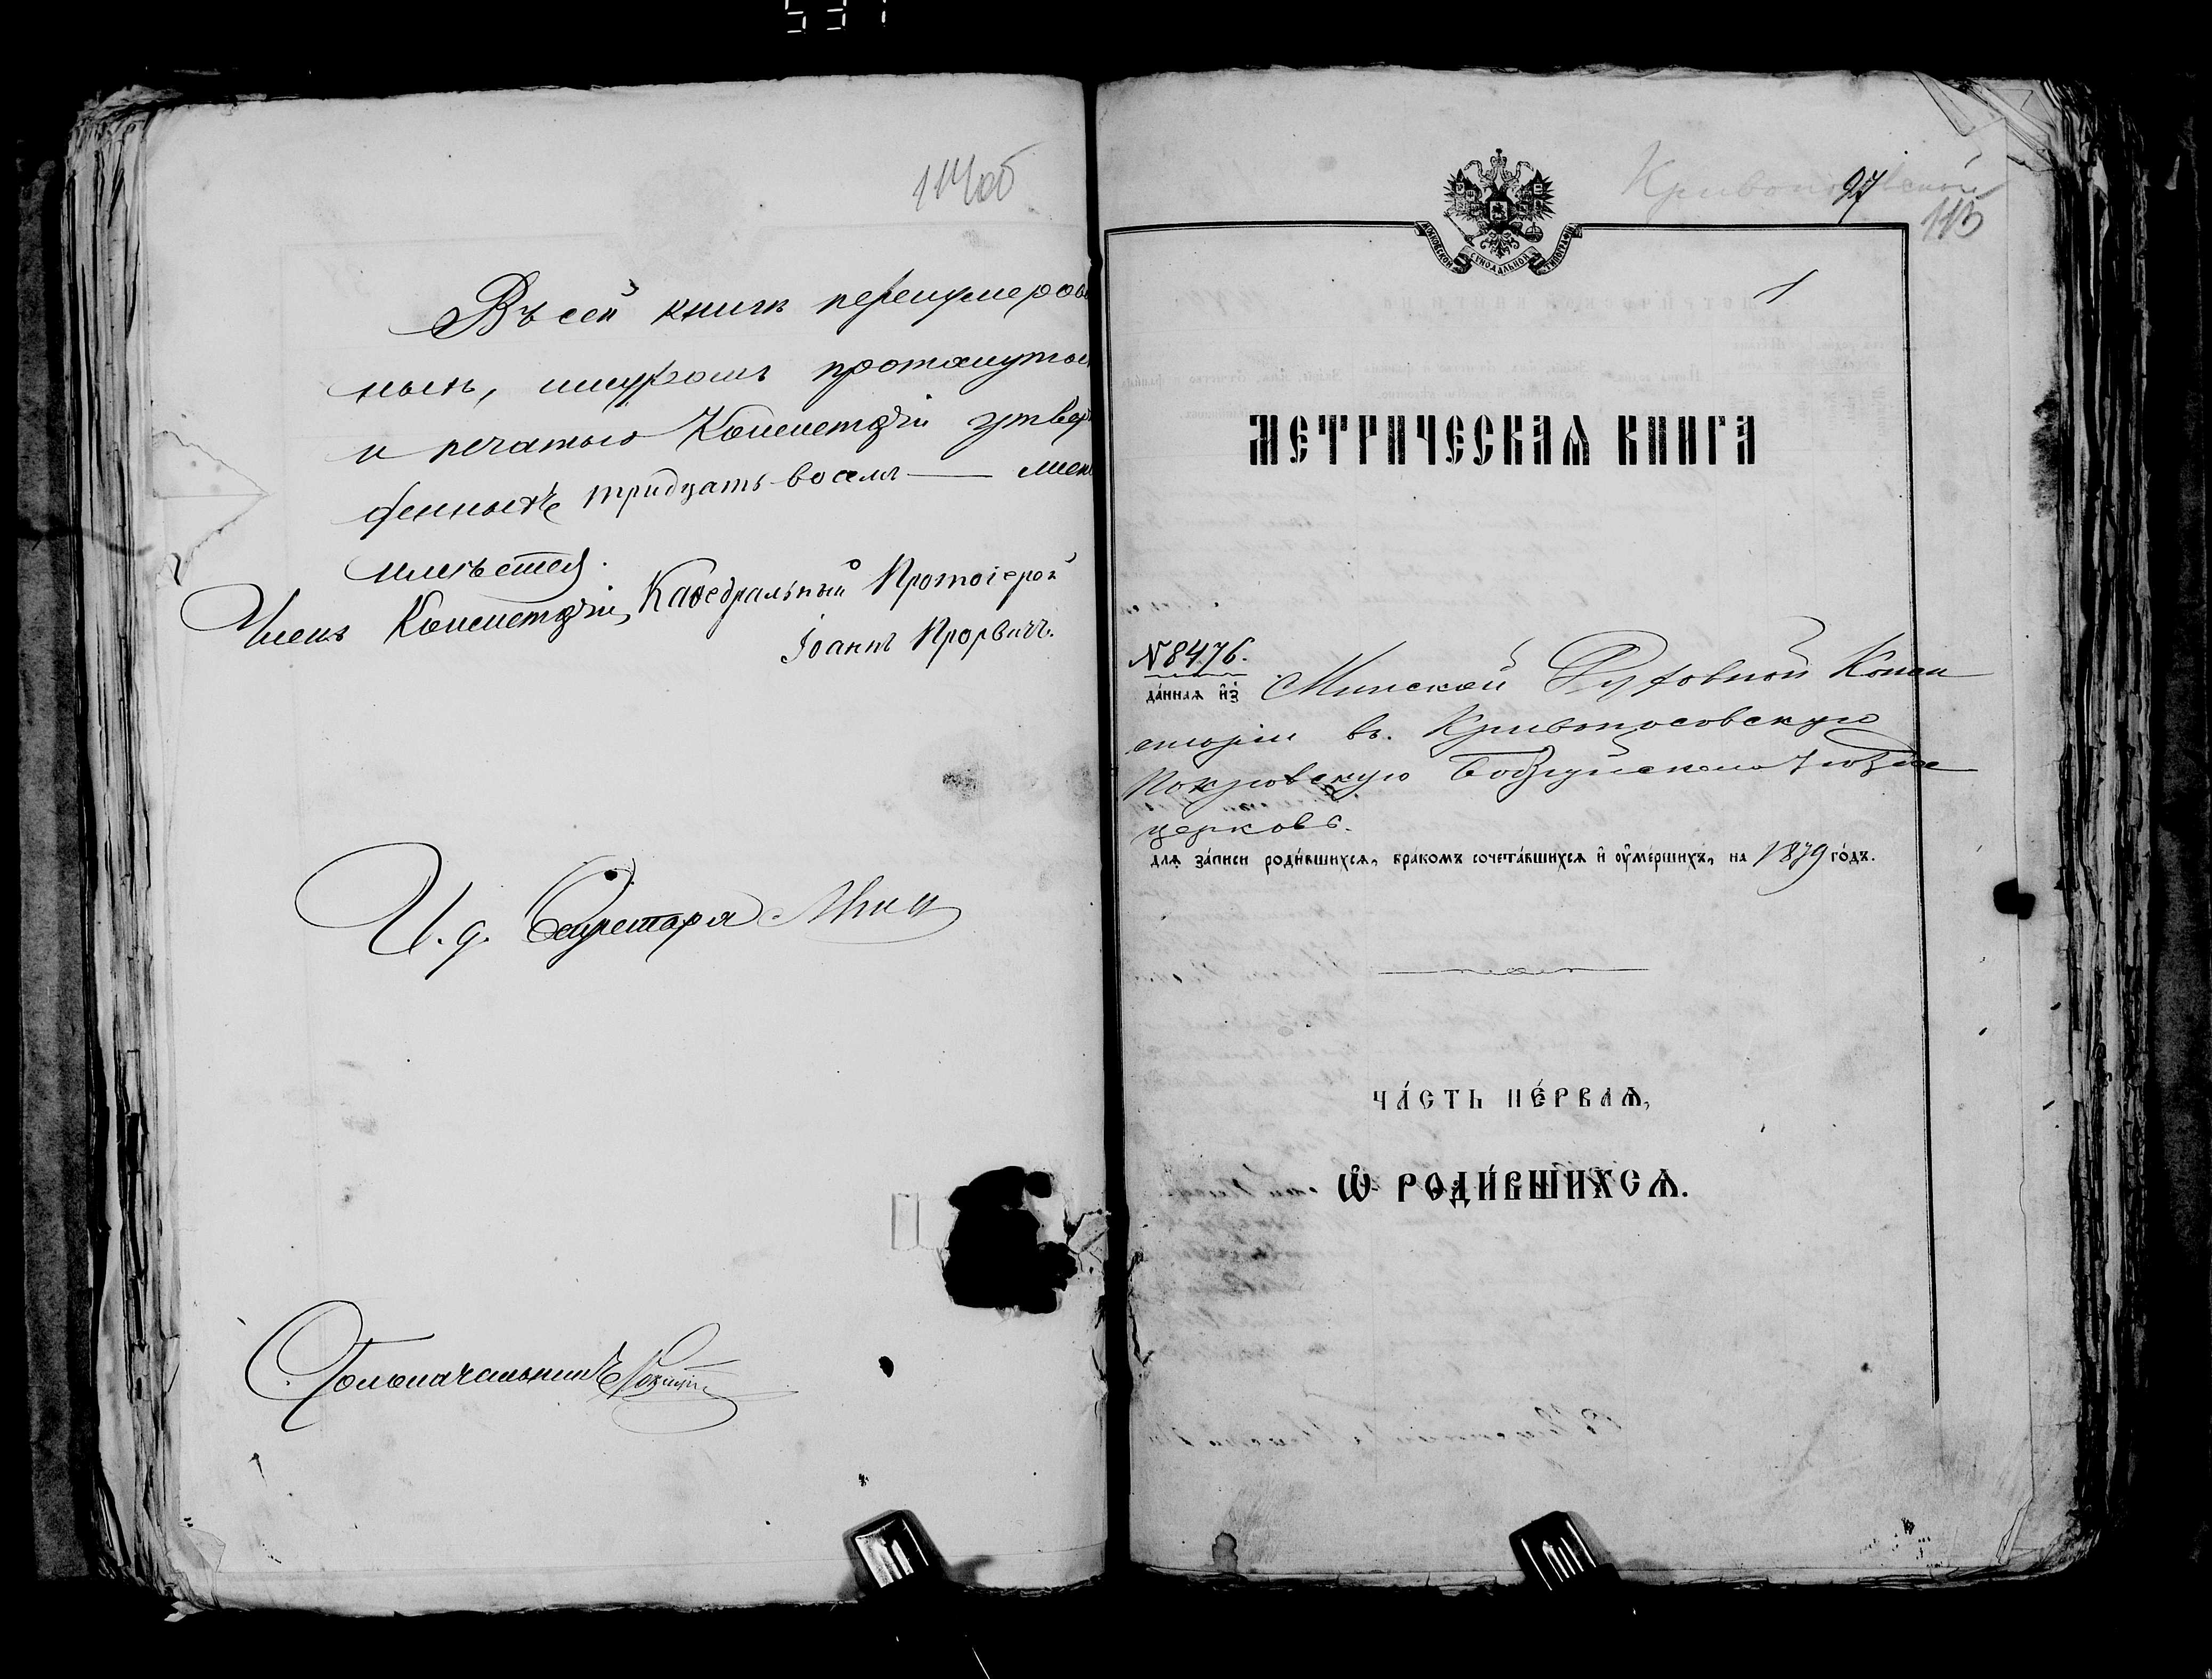 531
114об
Въ сей книгѣ перенумерован
ныхъ, шнуромъ протянутых
и печатью Консисторіи утверж
денныхъ тридцать восемь — лис
имѣется.
Членъ Консисторіи, Каѳедральный Протоіерей
Іоаннъ
И. д. Секретаря
Столоначальникъ
97
115
МОСКОВСКОЙ СѴНОДАЛЬНОЙ ТИПОГРАФІИ
1
МЕТРИЧЕСКАѦ КНИГА
№ 8476.
да́ннаѧ и҆з̾ Минской Духовной Конси
сторіи въ Кривоносовскую
Покровскую Бобруйскаго уѣзда
церковь.
длѧ за́писи роди́вшихсѧ, бра́комъ сочета́вшихсѧ и҆ ѹ҆ме́ршихъ, на 1879 го́дъ.
ЧА́СТЬ ПЕ́РВАѦ,
Ѽ РОДИ́ВШИХСѦ.